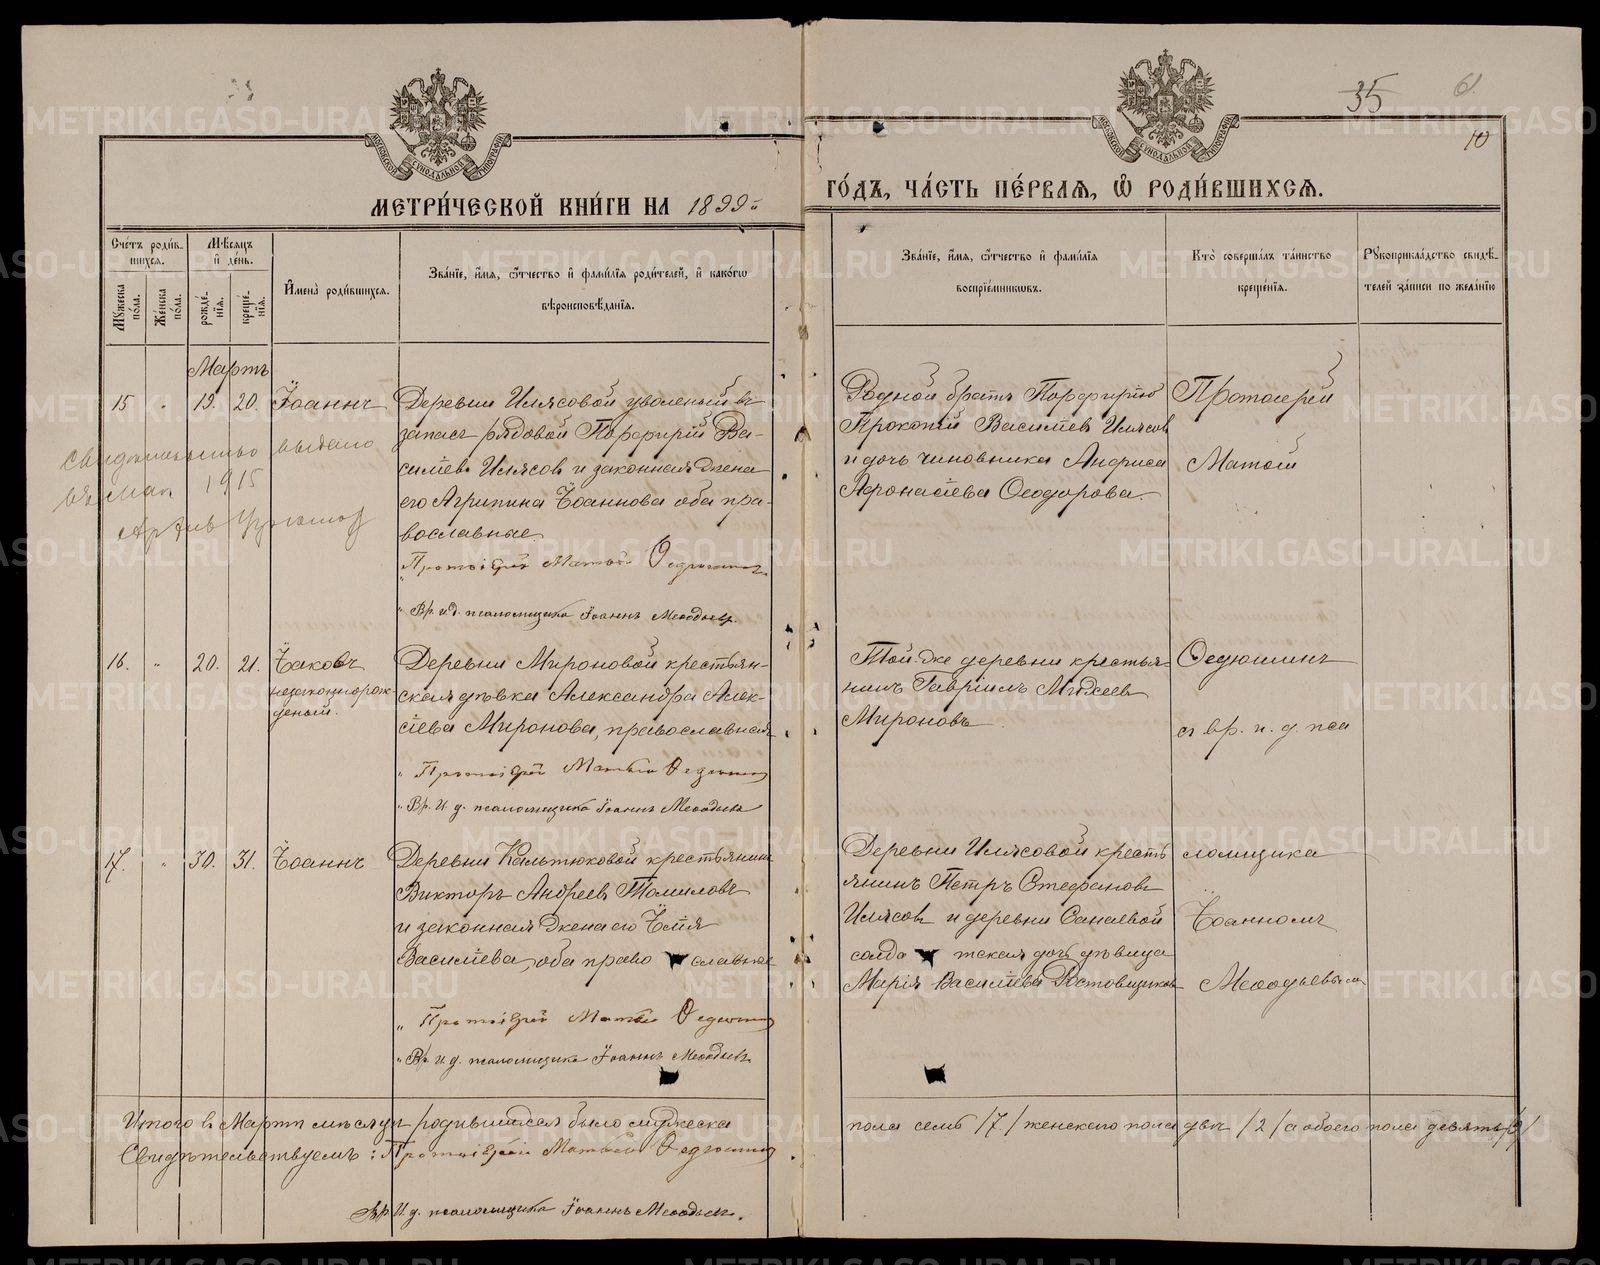 35
10
МЕТРИЧЕСКОЙ КНИГИ НА 1899й
ГОДЪ, ЧАСТЬ ПЕРВАЯ, Ѡ РОДИВШИХСЯ.
Счетъ родившихся.
Мужеска пола.
Женска пола.
Мѣсяцъ и день.
рожденія.
крещенія.
Имена родившихся.
Званіе, имя, отчество и фамилія родителей, и какого
вѣроисповѣданія.
Званіе, имя, отчество и фамилія
воспріемниковъ.
Кто совершалъ таинство
крещенія.
Рукоприкладство свидѣтелей записи по желанію
Мартъ
15 " 19. 20. Іоаннъ
Деревни Илясовой уволеный въ
запасъ рядовой Порфирій Ва-
силіевъ Илясов и законная жена
его Агрипина Іоаннова оба пра-
вославные.
Протоіерей Матѳій Ѳедюшинъ
Вр. и.д. псаломщика Іоаннъ Меѳодьевъ.
свидетельство выдано
въ мая 1915
Родной братъ Порфирію
Прокопій Василіевъ Илясов
и дочь чиновника Андриса
Афонасіева Ѳеодорова.
Протоіерей
Матѳій
16. " 20. 21. Іаковъ
незаконнорож-
деный.
Деревни Мироновой крестьян-
ская дѣвка Александра Алек-
сіева Миронова, православная
Протоіерей Матѳій Ѳедюшинъ
Вр. И. д. псаломщика Іоаннъ Меѳодьевъ
Той-же деревни крестья-
нинъ Гавріилъ Моѵсеевъ
Мироновъ
Ѳедюшинъ
съ вр. и. д. пса
17. " 30. 31. Іоаннъ
Деревни Кальтюковой крестьянинъ
Викторъ Андреевъ Томиловъ
и законная жена его Іулія
Василіева, оба православные
Протоіерей Матѳій Ѳедюшинъ
Вр. И. д. псаломщика Іоаннъ Меѳодьевъ.
Деревни Илясовой кресть
янинъ Петръ Стефановъ
Илясовъ и деревни Санаевой
солдатская дочь дѣвица
Марія Василіева Ростовщикова
ломщика
Іоанномъ
Меѳодьевымъ
Итого въ Мартѣ мѣсяцѣ родившихся было мужеска
пола семь /7/ женскаго пола двѣ /2/ а обоего пола девять /9/
Свидѣтельствуемъ: Протоіерей Матѳій Ѳедюшинъ
Вр. И д. псаломщика Іоаннъ Меѳодьевъ.
METRIKI.GASO-URAL.RU